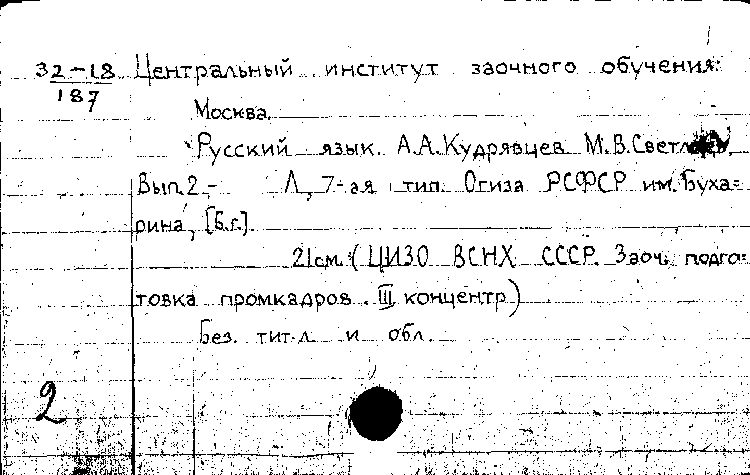 32-18 Центральный институт заочного обучения.
187
Москва.
Русский язык. А.А.Кудрявцев М.В.
Вып.2.- Л, 7-ая тип. Огиза РСФСР им. Буха-
рина, [Б.г.].
21см. (ЦИЗО ВСНХ СССР. Заоч. подго-
товка промкадров. III концентр)
Без. тит.л и обл.
2